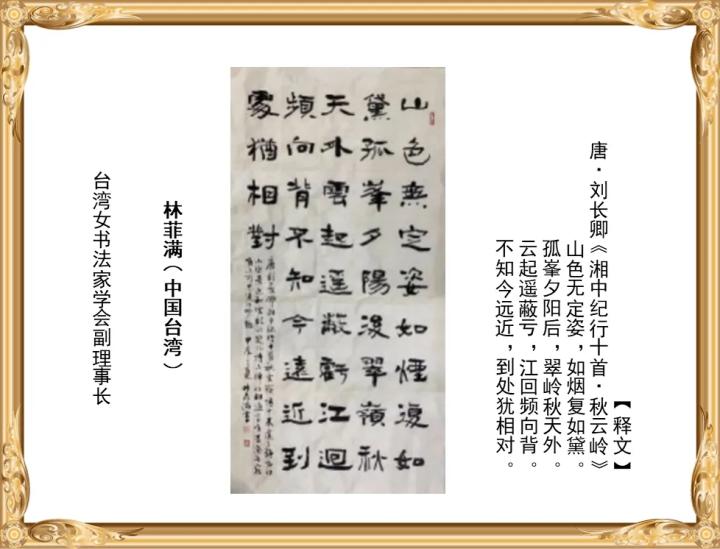 【释文】
唐·刘长卿《湘中纪行十首·秋云岭》
山色无定姿，如烟复如黛。
孤峯夕阳后，翠岭秋天外。
云起遥蔽亏，江回频向背。
不知今远近，到处犹相对。
山色無定姿如煙復如
黛孤峯夕陽後翠嶺秋
天外雲起遥蔽虧江迴
頻向背不知今遠近到
處猶相對
林菲满（中国台湾）
台湾女书法家学会副理事长